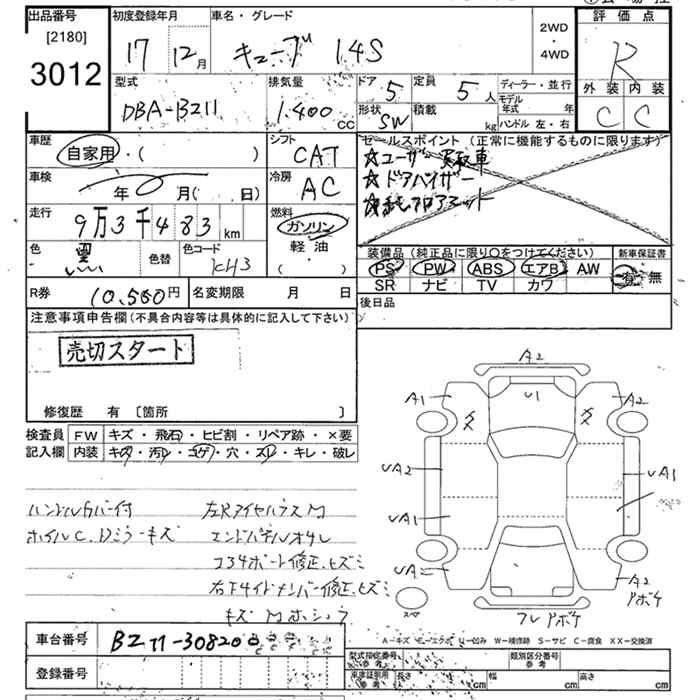 出品番号
[2180]
3012
初度登録年月
17 12月
車名・グレード
キューブ 1.4S
2WD
・
4WD
評価点
R
外装 内装
C C
型式
DBA-BZ11
排気量
1.400 CC
ドア 5
定員 5人
形状 SW
積載 kg
ディーラー・並行
モデル年式 年
ハンドル 左・右
車歴
自家用・( )
シフト
CAT
車検
年 月( 日)
冷房
AC
走行
9万3千483 km
燃料
ガソリン
軽油
( )
色 黒
色替
色コード KH3
セールスポイント (正常に機能するものに限ります)
☆ユーザー買取車
☆ドアバイザー
装備品 (純正品に限り○をつけてください)
PS PW ABS エアB AW
SR ナビ TV カワ
新車保証書
有・無
後日品
R券 10,560円
名変期限 月 日
注意事項申告欄(不具合内容等は具体的に記入して下さい)
売切スタート
修復歴 有 〔箇所 〕
検査員記入欄
FW キズ・飛石・ヒビ割・リペア跡・×要
内装 キズ・汚レ・コゲ・穴・スレ・キレ・破レ
ハンドルカバー付
ホイルC.Dミラーキズ
左RタイヤハウスM
エンドパネルオサレ
コアサポート修正.ヒズミ
右Fサイドメンバー修正.ヒズミ
キズ M
A2
A1
U1
A2
UA2
UA1
UA1
A2
スペ
フレアボケ
アボケ
車台番号 BZ11-308200
登録番号
A-キズ E-エクボ U-凹み W-補修跡 S-サビ C-腐食 XX-交換済
型式指定番号 参考
類別区分番号 参考
車庫証明用 参考
長さ cm 幅 cm 高さ cm